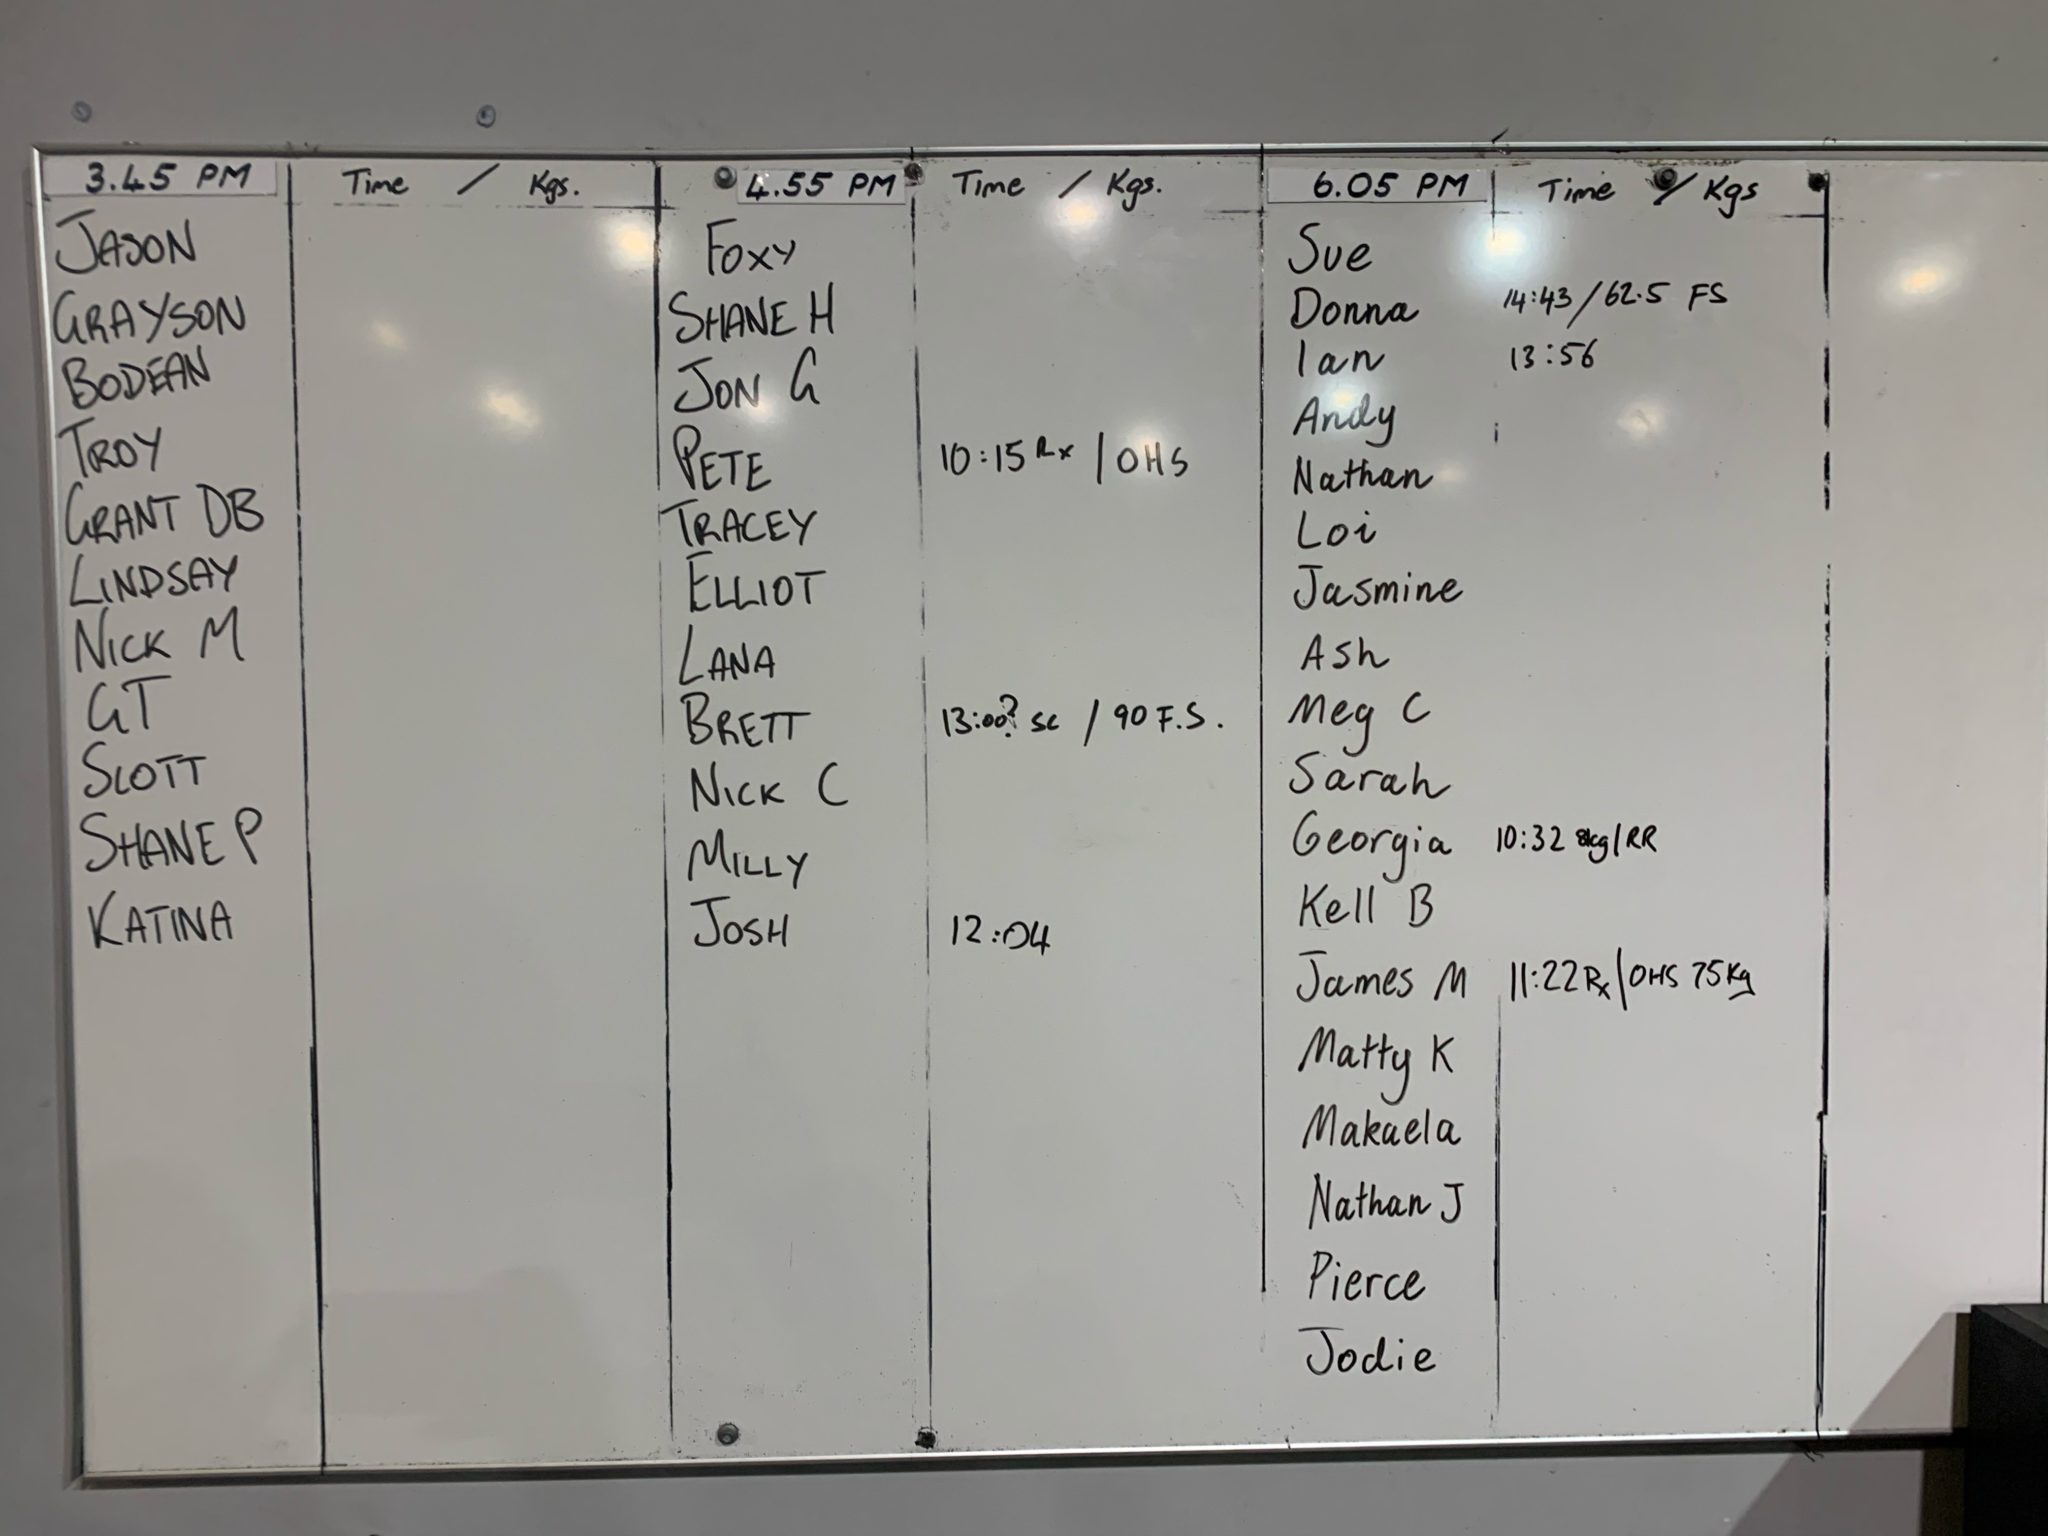 3.45 PM Time / Kgs.
JASON
GRAYSON
BODEAN
TROY
GRANT DB
LINDSAY
NICK M
GT
SCOTT
SHANE P
KATINA
4.55 PM Time / Kgs.
FOXY
SHANE H
JON G
PETE 10:15 Rx / OHS
TRACEY
ELLIOT
LANA
BRETT 13:00? SC / 90 F.S.
NICK C
MILLY
JOSH 12:04
6.05 PM Time / Kgs
Sue
Donna 14:43 / 62.5 FS
Ian 13:56
Andy
Nathan
Loi
Jasmine
Ash
Meg C
Sarah
Georgia 10:32 8kg/RR
Kell B
James M 11:22 Rx / OHS 75Kg
Matty K
Makaela
Nathan J
Pierce
Jodie